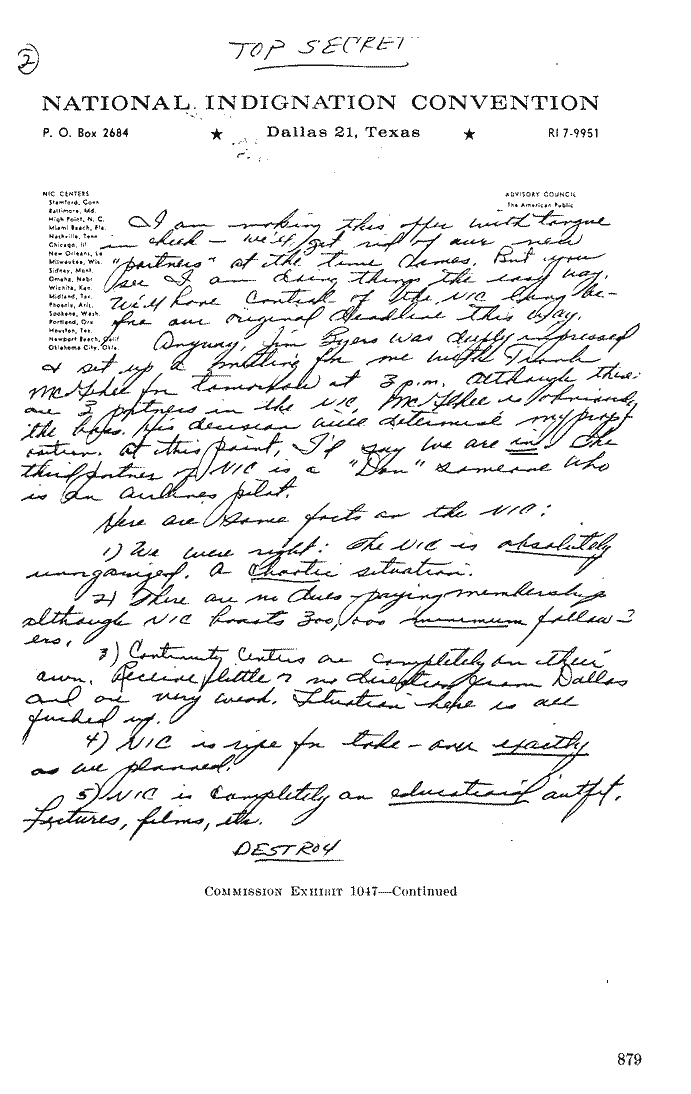 2
TOP SECRET
NATIONAL INDIGNATION CONVENTION
P. O. Box 2684 ★ Dallas 21, Texas ★ RI 7-9951
NIC CENTERS
Stamford, Conn
Baltimore, Md.
High Point, N. C.
Miami Beach, Fla.
Nashville, Tenn
Chicago, Ill
New Orleans, La
Milwaukee, Wis.
Sidney, Mont.
Omaha, Nebr
Wichita, Kan.
Midland, Tex.
Phoenix, Ariz.
Spokane, Wash.
Portland, Ore
Houston, Tex.
Newport Beach, Calif
Oklahoma City, Okla.
ADVISORY COUNCIL
The American Public
I am making this offer with tongue
in cheek — we'll get rid of our new
"partners" at the time comes. But you
see I am doing things the easy way.
We'll have control of the NIC long be-
fore our original deadline this way.
Anyway, Jim Byers was deeply impressed
& set up a meeting for me with Frank
McGhee for tomorrow at 3 p.m. Although there
are 3 partners in the NIC, McGhee is obviously
the boss. His decision will determine my prop-
osition. At this point, I'd say we are in. The
third partner of NIC is a "Don" someone who
is an airlines pilot.
Here are some facts on the NIC:
1) We were right: The NIC is absolutely
unorganized. A chaotic situation.
2) There are no dues-paying memberships
although NIC boasts 300,000 minimum follow-
ers.
3) Continuity Centers are completely on their
own. Receive little or no direction from Dallas
and are very weak. Situation here is all
fucked up.
4) NIC is ripe for take-over exactly
as we planned.
5) NIC is completely an educational outfit.
Lectures, films, etc.
DESTROY
COMMISSION EXHIBIT 1047—Continued
879